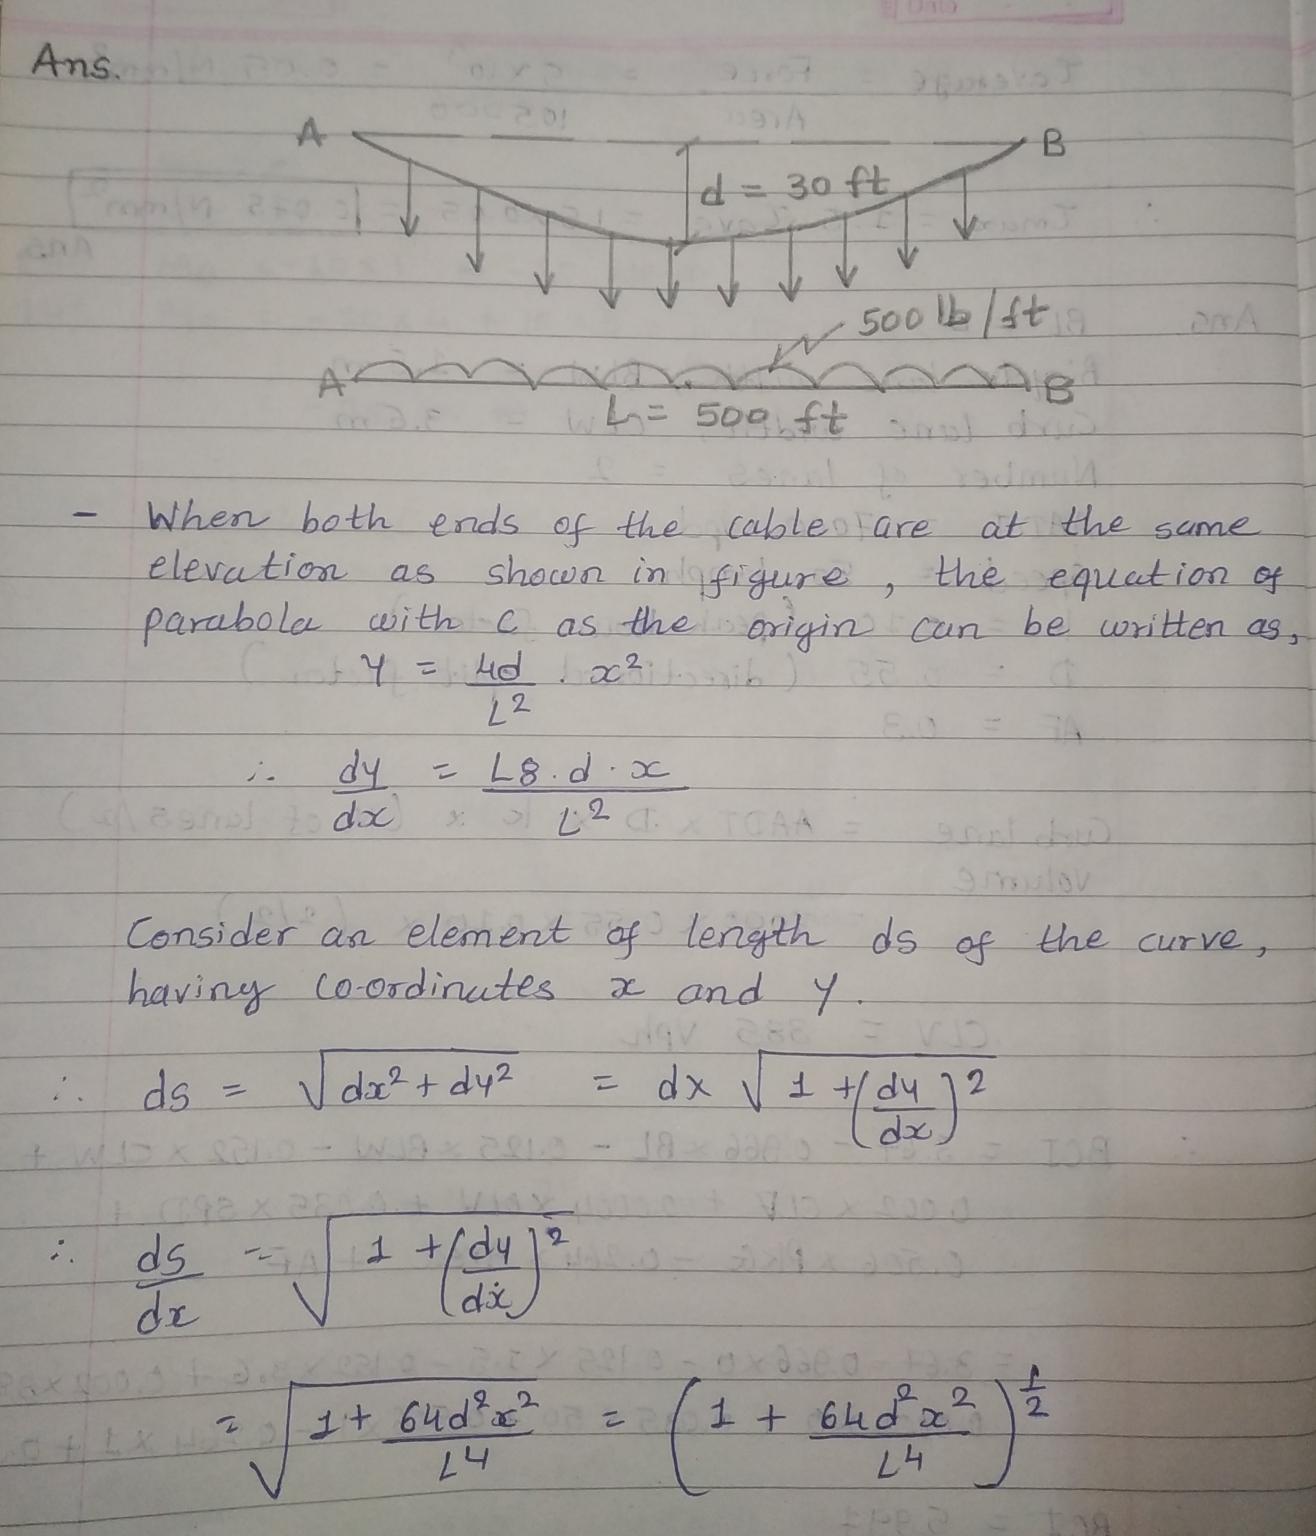 Ans.
A B
d = 30 ft
500 lb/ft
A B
L = 500 ft
- When both ends of the cable are at the same
elevation as shown in figure, the equation of
parabola with C as the origin can be written as,
y = 4d/L² . x²
∴ dy/dx = L8.d.x/L²
Consider an element of length ds of the curve,
having co-ordinates x and y.
∴ ds = √(dx² + dy²) = dx √(1 + (dy/dx)²)
∴ ds/dx = √(1 + (dy/dx)²)
= √(1 + 64d²x²/L⁴) = (1 + 64d²x²/L⁴)^(1/2)